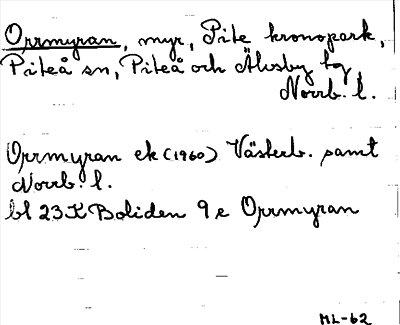 Orrmyran, myr, Pite kronopark,
Piteå sn, Piteå och Älvsby tg
Norrb. l.
Orrmyran ek (1960) Västerb. samt
Norrb. l.
bl 23 K Boliden 9 e Orrmyran
ML-62